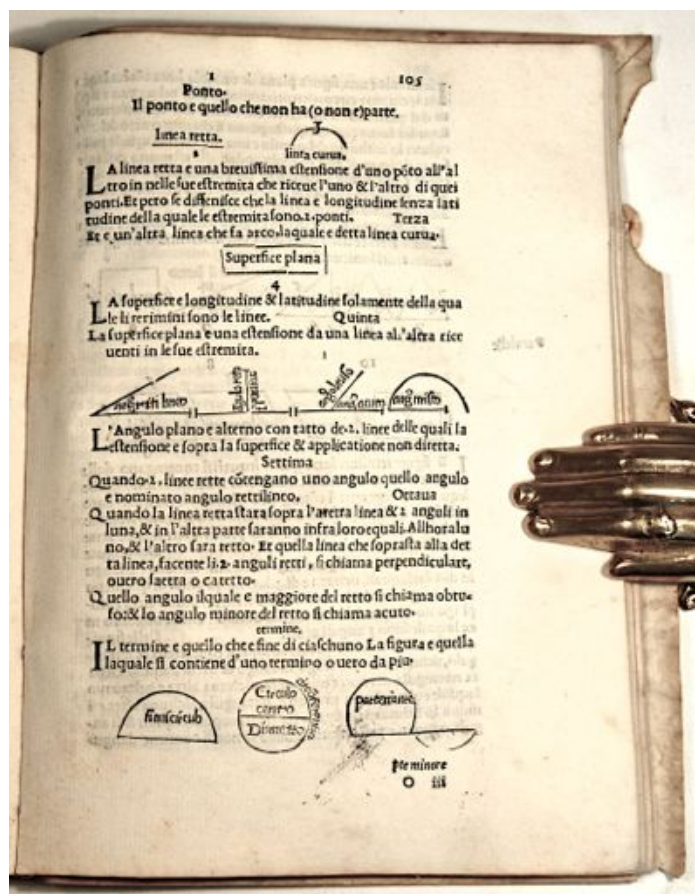 1 105
Ponto.
Il ponto e quello che non ha (o non e) parte.
linea retta. 3
2 linea curua.
LA linea retta e una breuissima estensione d'uno põto all'al
tro in nelle sue estremita che riceue l'uno & l'altro di quei
ponti. Et pero se diffenisce che la linea e longitudine senza lati
tudine della quale le estremita sono .2. ponti. Terza
Et e un'altra linea che fa arco, laquale e detta linea curua.
Superfice plana
4
LA superfice e longitudine & latitudine solamente della qua
le li termini sono le linee. Quinta
La superfice plana e una estensione da una linea al'altra rice
uenti in le sue estremita.
L'Angulo plano e alterno con tatto de .2. linee delle quali la
estensione e sopra la superfice & applicatione non diretta.
Settima
Quando .2. linee rette cõtengano uno angulo quello angulo
e nominato angulo rettilineo. Octaua
Quando la linea retta stara sopra l'a retta linea & 2 anguli in
luna, & in l'altra parte saranno infra loro equali. Allhora lu
no, & l'altro sara retto. Et quella linea che soprasta alla det
ta linea, facente li .2. anguli retti, si chiama perpendiculare,
ouero saetta o catetto.
Quello angulo ilquale e maggiore del retto si chiama obtu-
so: & lo angulo minore del retto si chiama acuto.
termine.
IL termine e quello che e fine di ciaschuno La figura e quella
laquale si contiene d'uno termino o uero da piu.
Circulo
centro
Diametro
pte minore
O iii